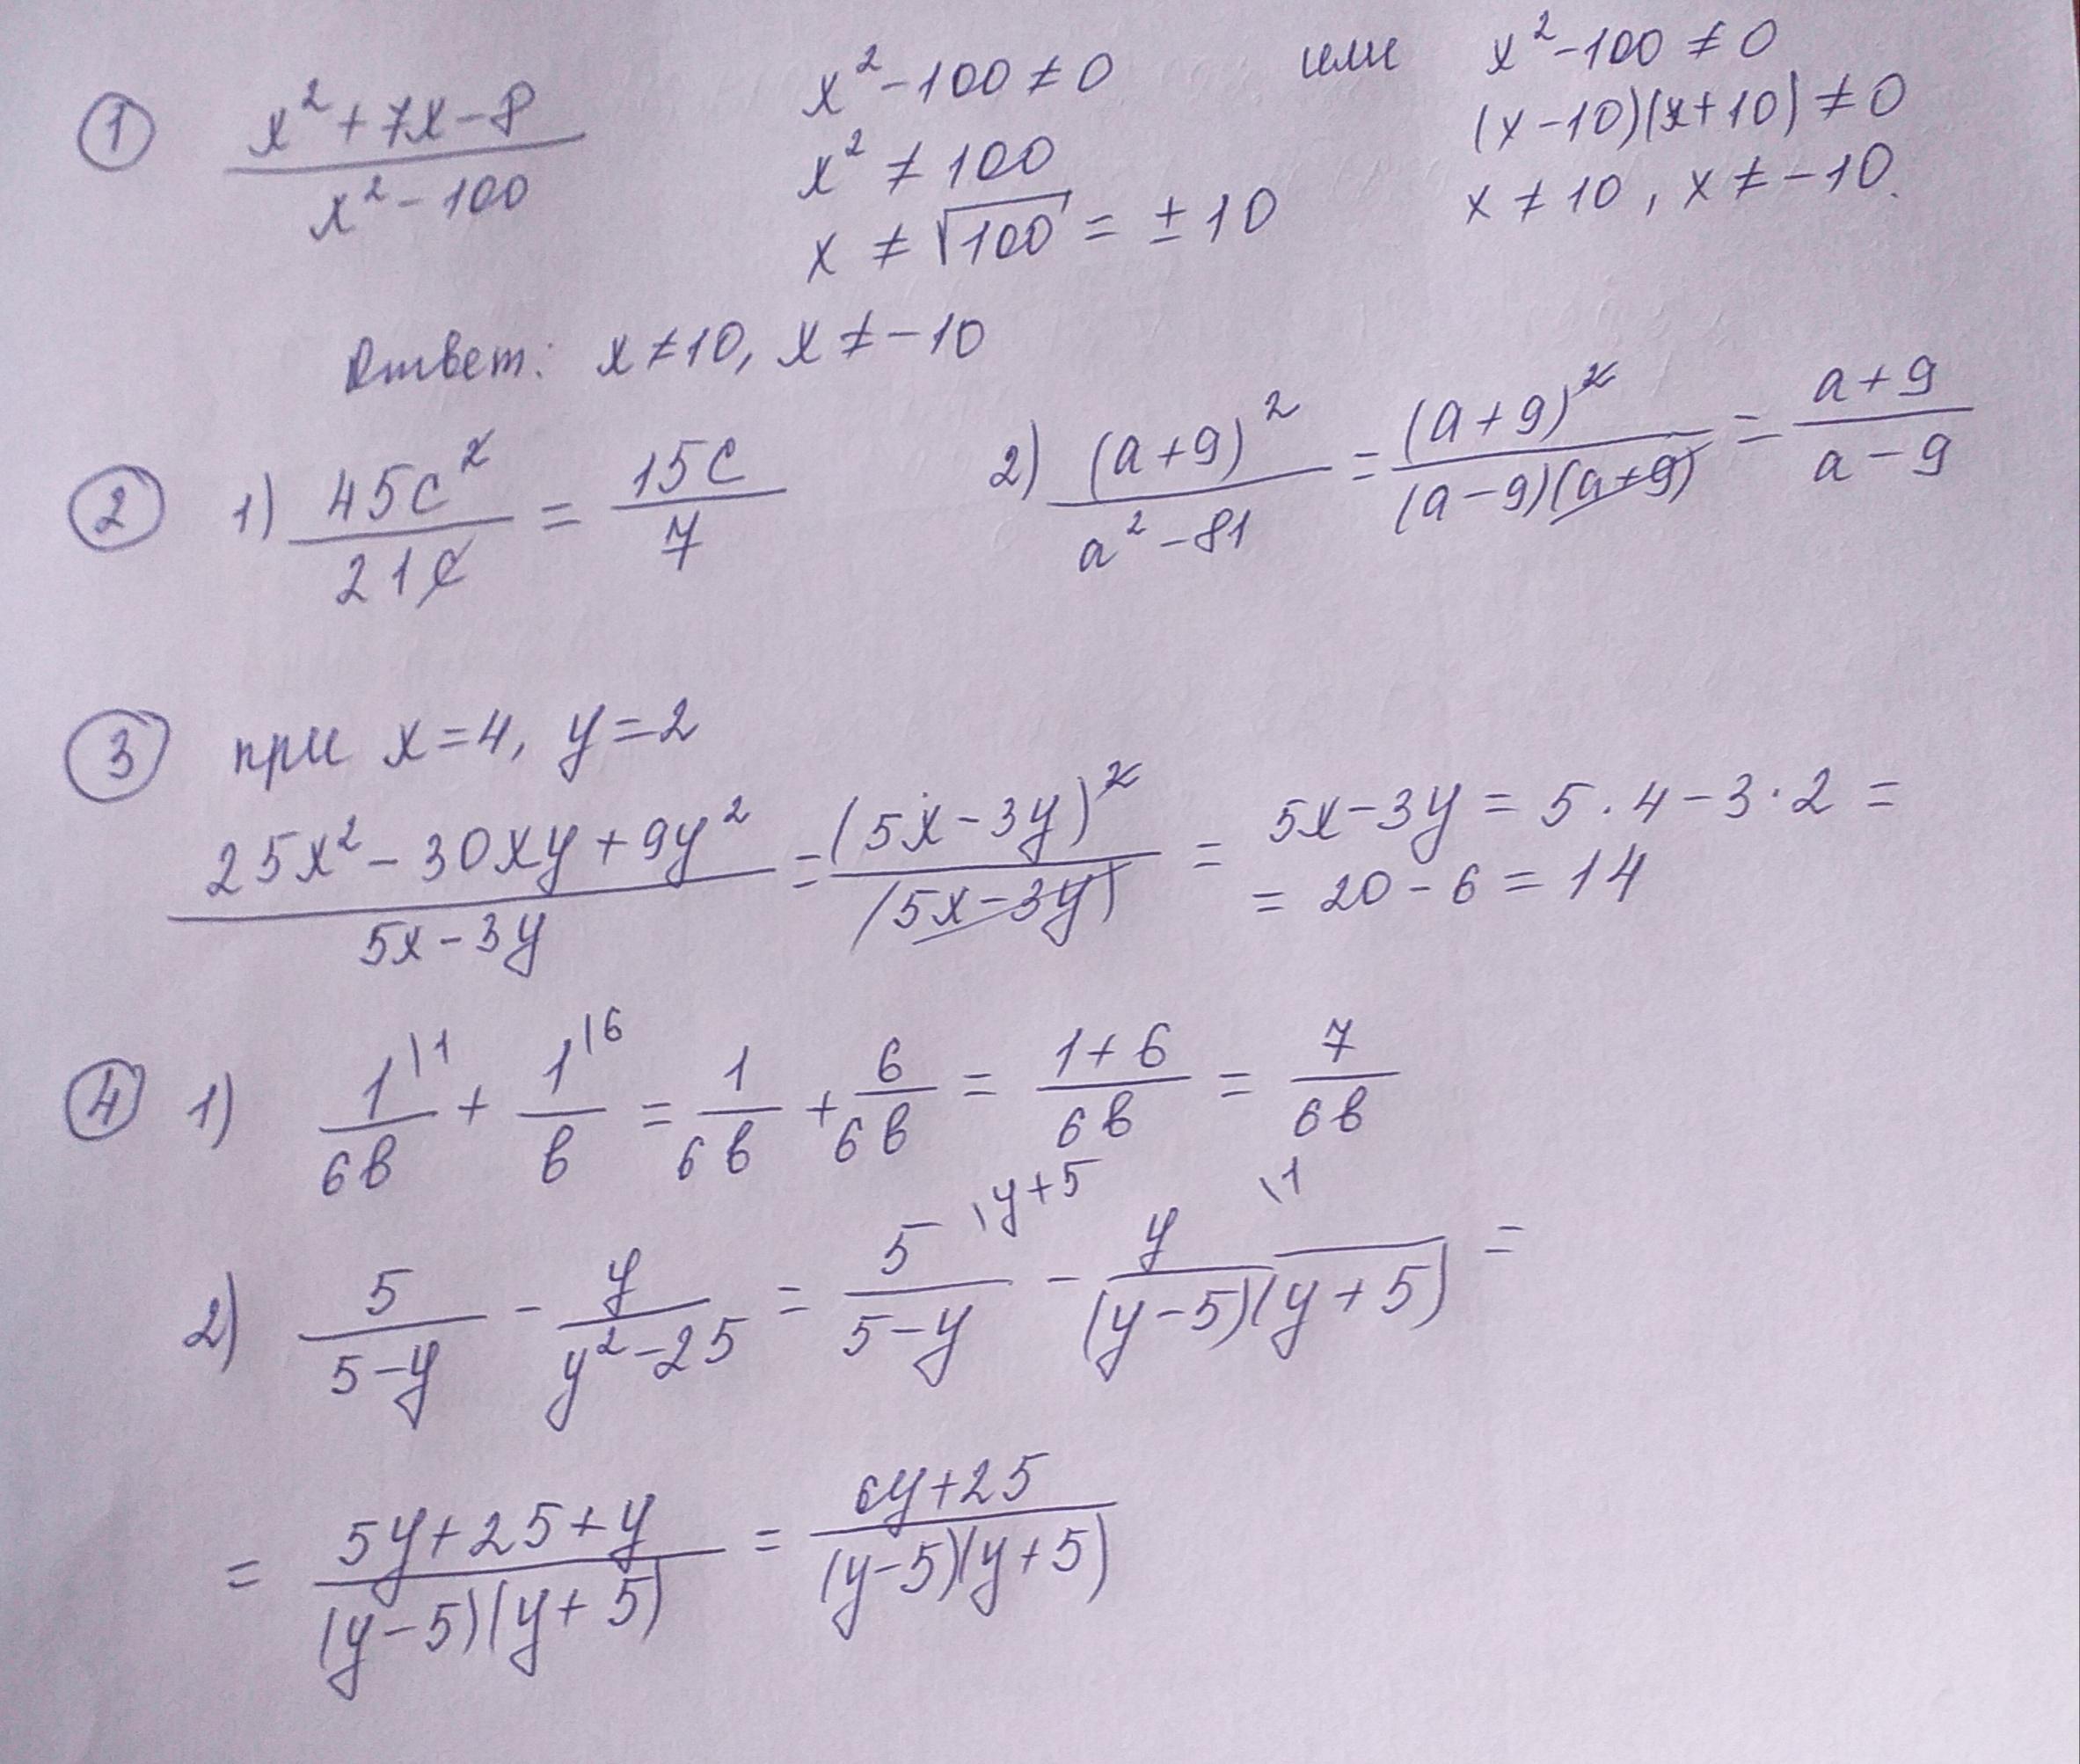 ① (x² + 7x - 8)/(x² - 100)
x² - 100 ≠ 0
x² ≠ 100
x ≠ √100 = ± 10
или
x² - 100 ≠ 0
(x - 10)(x + 10) ≠ 0
x ≠ 10, x ≠ -10.
Ответ: x ≠ 10, x ≠ -10
② 1) 45c²/21c = 15c/7
2) (a + 9)²/(a² - 81) = (a + 9)²/((a - 9)(a + 9)) = (a + 9)/(a - 9)
③ при x = 4, y = 2
(25x² - 30xy + 9y²)/(5x - 3y) = (5x - 3y)²/(5x - 3y) = 5x - 3y = 5 · 4 - 3 · 2 =
= 20 - 6 = 14
④ 1) 1\1/6в + 1\6/в = 1/6в + 6/6в = (1 + 6)/6в = 7/6в
2) 5/(5 - y) - y/(y² - 25) = 5\y+5/(5 - y) - y\1/((y - 5)(y + 5)) =
= (5y + 25 + y)/((y - 5)(y + 5)) = (6y + 25)/((y - 5)(y + 5))